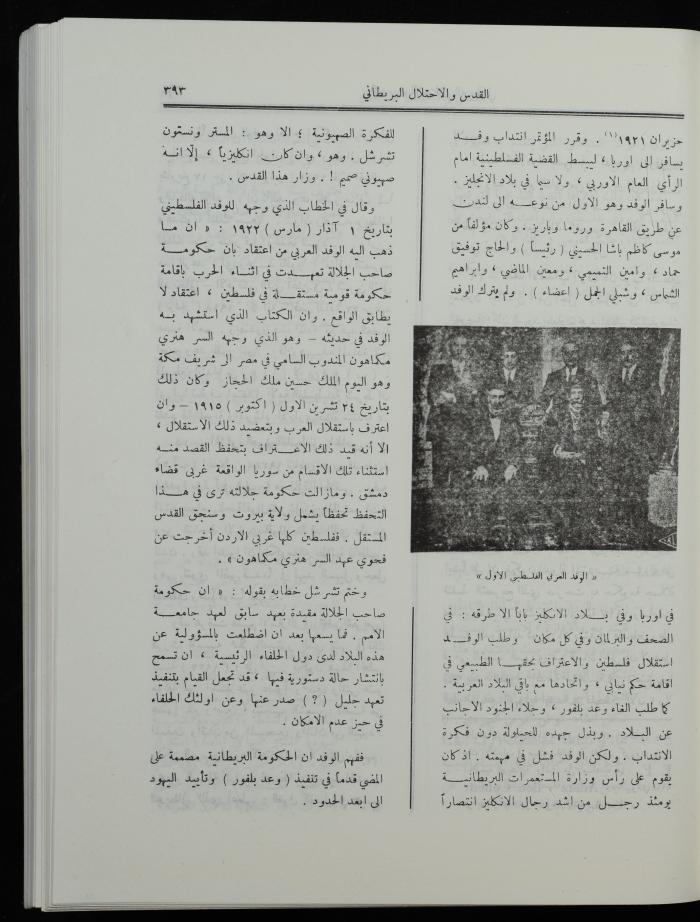 القدس والاحتلال البريطاني
٣٩٣
حزيران ١٩٢١ (١) . وقرر المؤتمر انتداب وفد
يسافر الى اوربا ، ليبسط القضية الفلسطينية امام
الرأي العام الاوربي ، ولا سيا في بلاد الانجليز .
وسافر الوفد وهو الاول من نوعه الى لندن
عن طريق القاهرة وروما وباريز . وكان مؤلفاً من
موسى كاظم باشا الحسيني ( رئيساً ) والحاج توفيق
حماد ، وامين التميمي ، ومعين الماضي ، وابراهيم
الشماس ، وشبلي الجمل ( اعضاء ) . ولم يترك الوفد
« الوفد العربي الفلسطيني الاول »
في اوربا وفي بلاد الانكليز باباً الا طرقه : في
الصحف والبرلمان وفي كل مكان وطلب الوفد
استقلال فلسطين والاعتراف بحقها الطبيعي في
اقامة حكم نيابي ، واتحادها مع باقي البلاد العربية .
كما طلب الغاء وعد بلفور ، وجلاء الجنود الاجانب
عن البلاد . وبذل جهده للحيلولة دون فكرة
الانتداب . ولكن الوفد فشل في مهمته . اذ كان
يقوم على رأس وزارة المستعمرات البريطانية
يومئذ رجل من اشد رجال الانكليز انتصاراً
للفكرة الصهيونية ؛ الا وهو : المستر ونستون
تشرشل . وهو ، وان كان انكليزياً ، إلّا انه
صهيوني صميم ! . وزار هذا القدس .
وقال في الخطاب الذي وجهه للوفد الفلسطيني
بتاريخ ١ آذار ( مارس ) ١٩٢٢ : « ان ما
ذهب اليه الوفد العربي من اعتقاد بان حكومة
صاحب الجلالة تعهدت في اثناء الحرب باقامة
حكومة قومية مستقلة في فلسطين ، اعتقاد لا
يطابق الواقع . وان الكتاب الذي استشهد به
الوفد في حديثه – وهو الذي وجهه السر هنري
مكماهون المندوب السامي في مصر الى شريف مكة
وهو اليوم الملك حسين ملك الحجاز وكان ذلك
بتاريخ ٢٤ تشرين الاول ( اكتوبر ) ١٩١٥ – وان
اعترف باستقلال العرب وبتعضيد ذلك الاستقلال ،
الا أنه قيد ذلك الاعتراف بتحفظ القصد منه
استثناء تلك الاقسام من سوريا الواقعة غربي قضاء
دمشق . ومازالت حكومة جلالته ترى في هذا
التحفظ تحفظاً يشمل ولاية بيروت وسنجق القدس
المستقل . ففلسطين كلها غربي الاردن أخرجت عن
فحوي عهد السر هنري مكماهون » .
وختم تشرشل خطابه بقوله : « ان حكومة
صاحب الجلالة مقيدة بعهد سابق لعهد جامعة
الامم . فما يسعها بعد ان اضطلعت بالمسؤولية عن
هذه البلاد لدى دول الحلفاء الرئيسية ، ان تسمح
بانتشار حالة دستورية فيها ، قد تجعل القيام بتنفيذ
تعهد جليل ( ? ) صدر عنها وعن اولئك الحلفاء
في حيز عدم الامكان .
ففهم الوفد ان الحكومة البريطانية مصممة على
المضي قدماً في تنفيذ ( وعد بلفور ) وتأييد اليهود
الى ابعد الحدود .